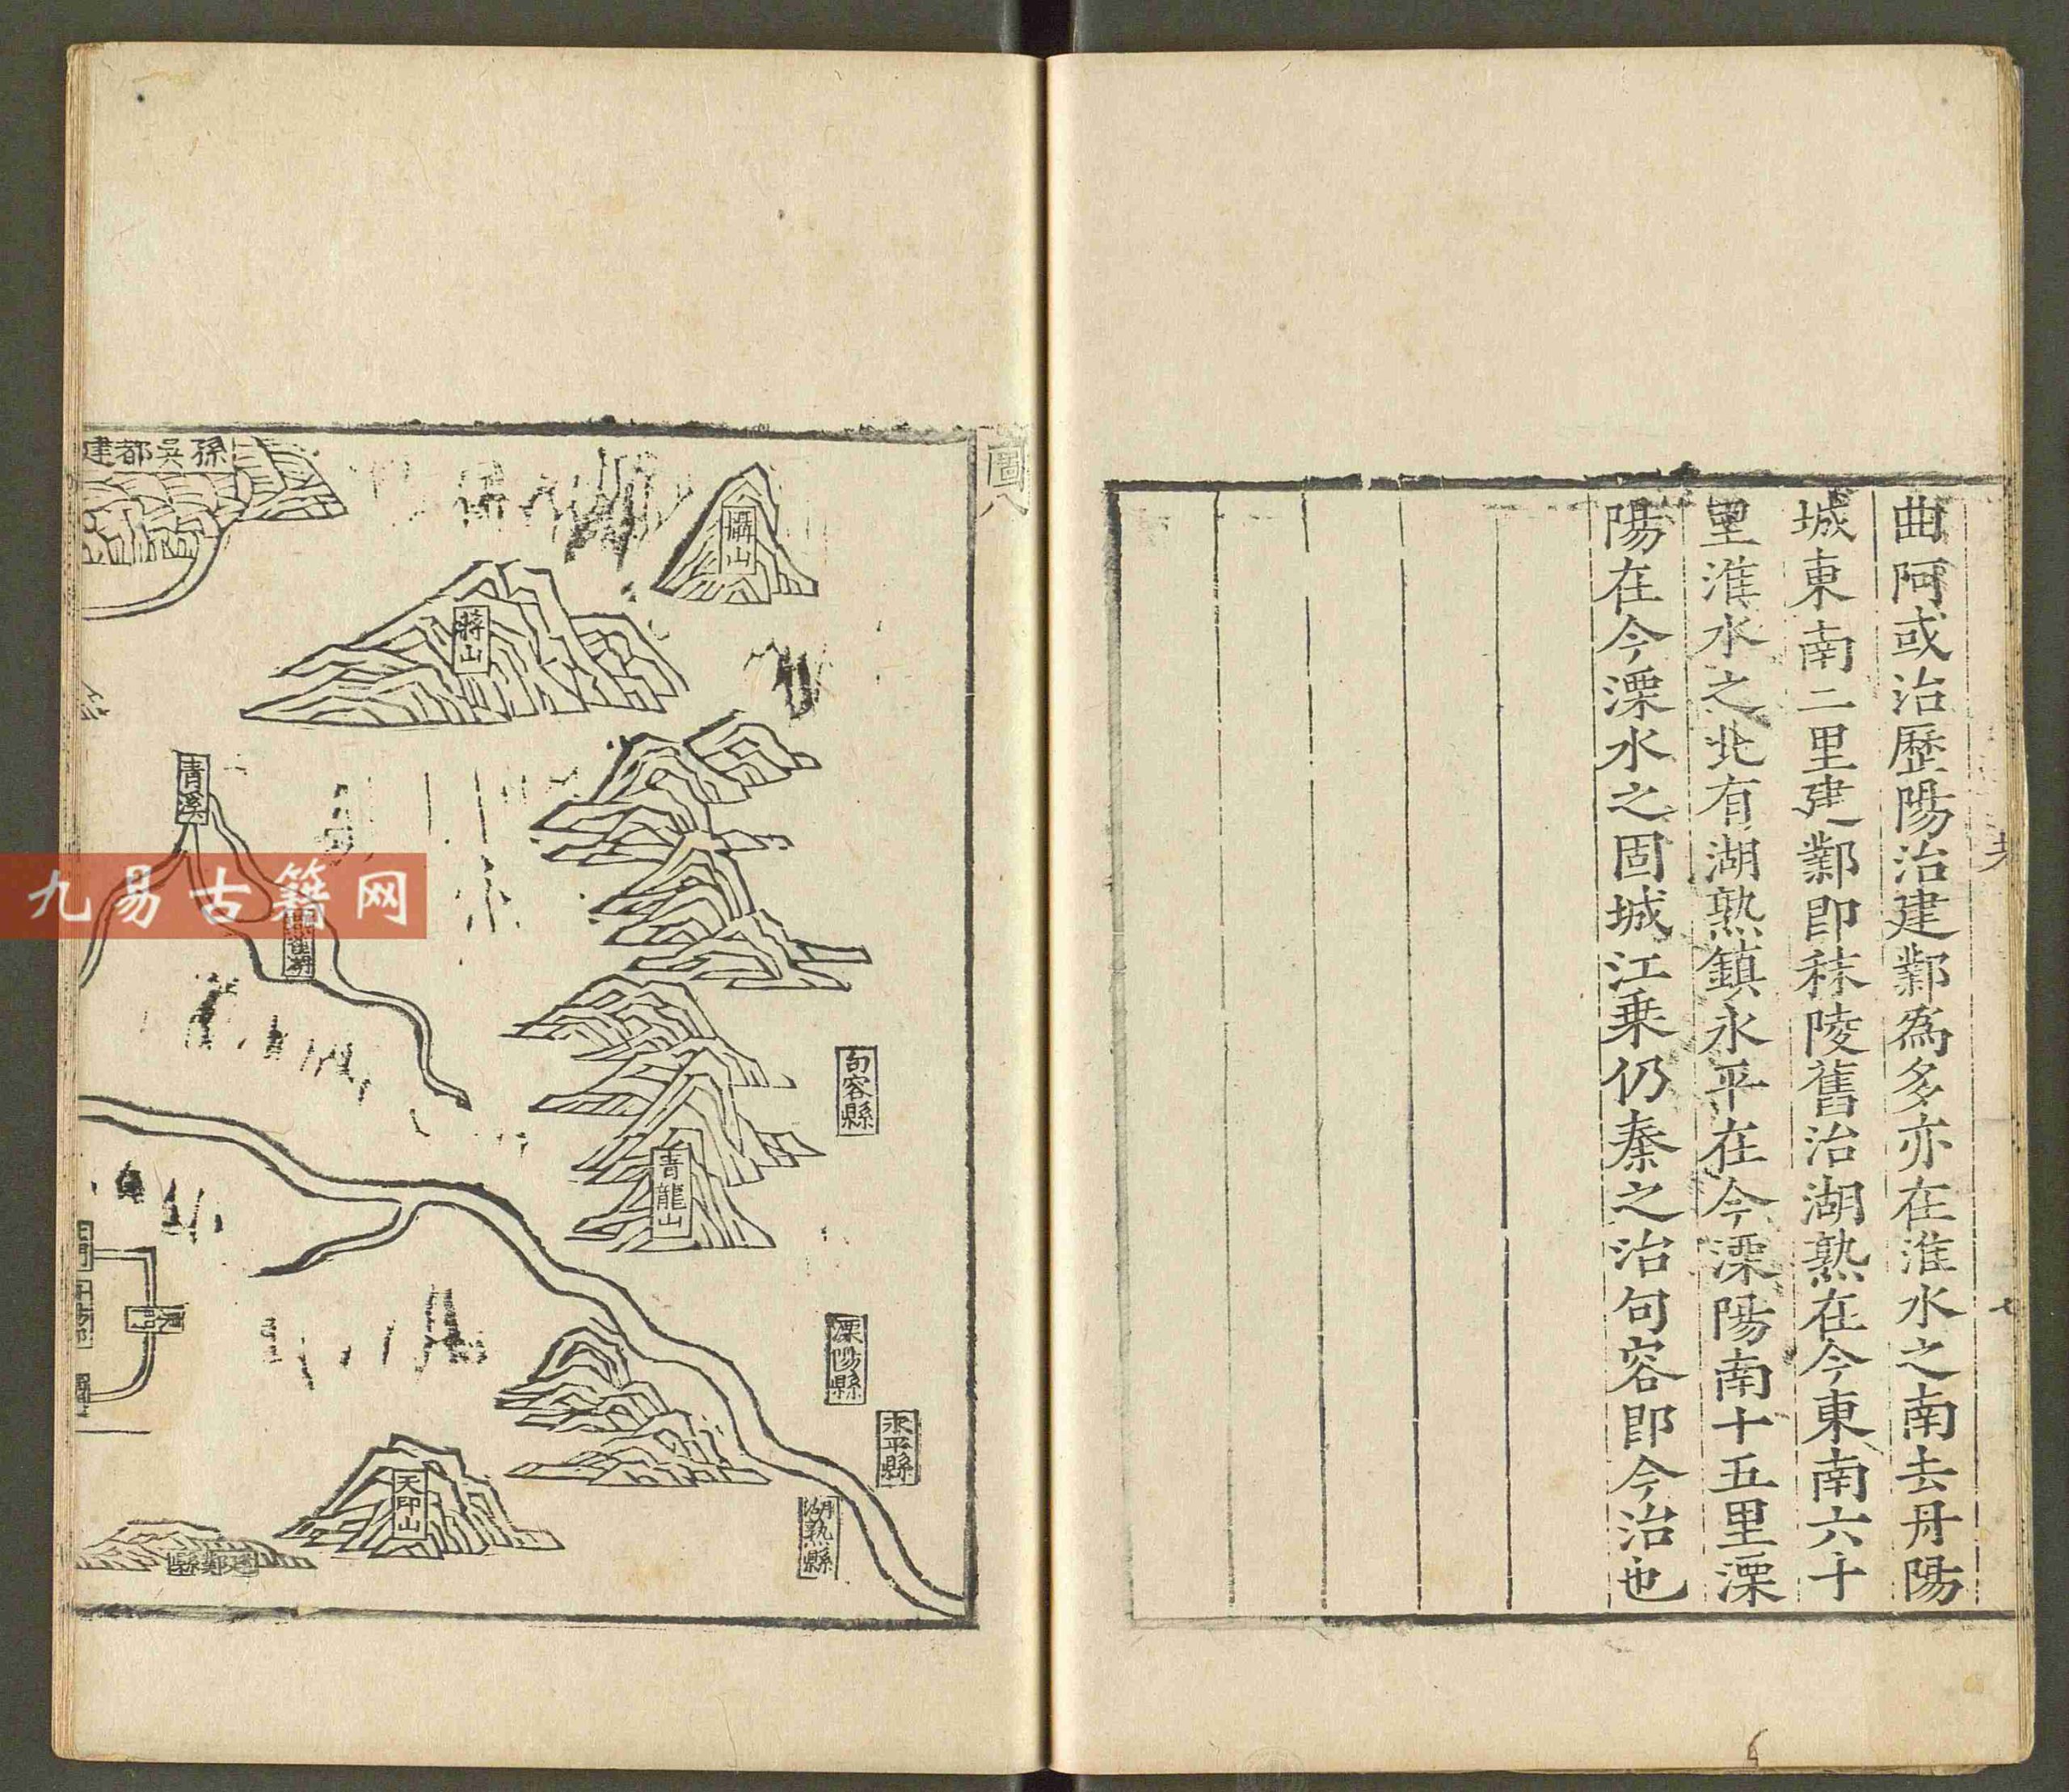 曲阿或治歷陽治建鄴為多亦在淮水之南去丹陽
城東南二里建鄴即秣陵舊治湖熟在今東南六十
里淮水之北有湖熟鎮永平在今溧陽南十五里溧
陽在今溧水之固城江乗仍秦之治句容即今治也
圖八
孫吳都建
攝山
蔣山
青溪
句容縣
青龍山
溧陽縣
永平縣
湖熟縣
天印山
建鄴縣
九易古籍网